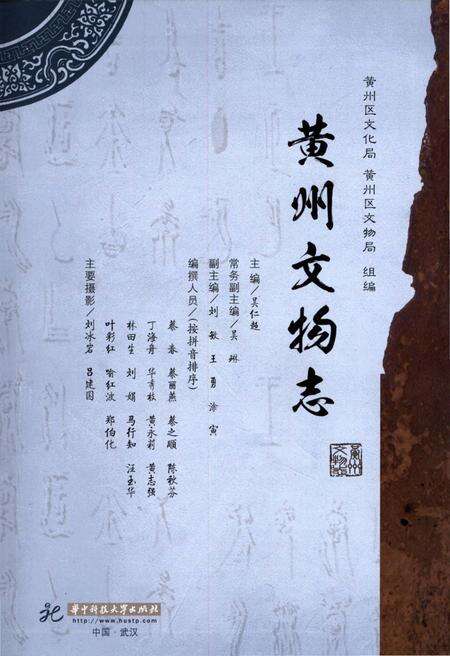 黄州区文化局 黄州区文物局 组编
黄州文物志
主编/吴仁超
常务副主编/吴琳
副主编/刘敏 王勇 涂寅
编撰人员/(按拼音排序)
蔡春 蔡丽燕 蔡之颐 陈秋芬
丁海舟 华青枝 黄永莉 黄志强
林田生 刘娟 马行知 汪玉华
叶彩红 喻红波 郑伯化
主要摄影/刘冰岩 吕建国
华中科技大学出版社
http://www.hustp.com
中国·武汉